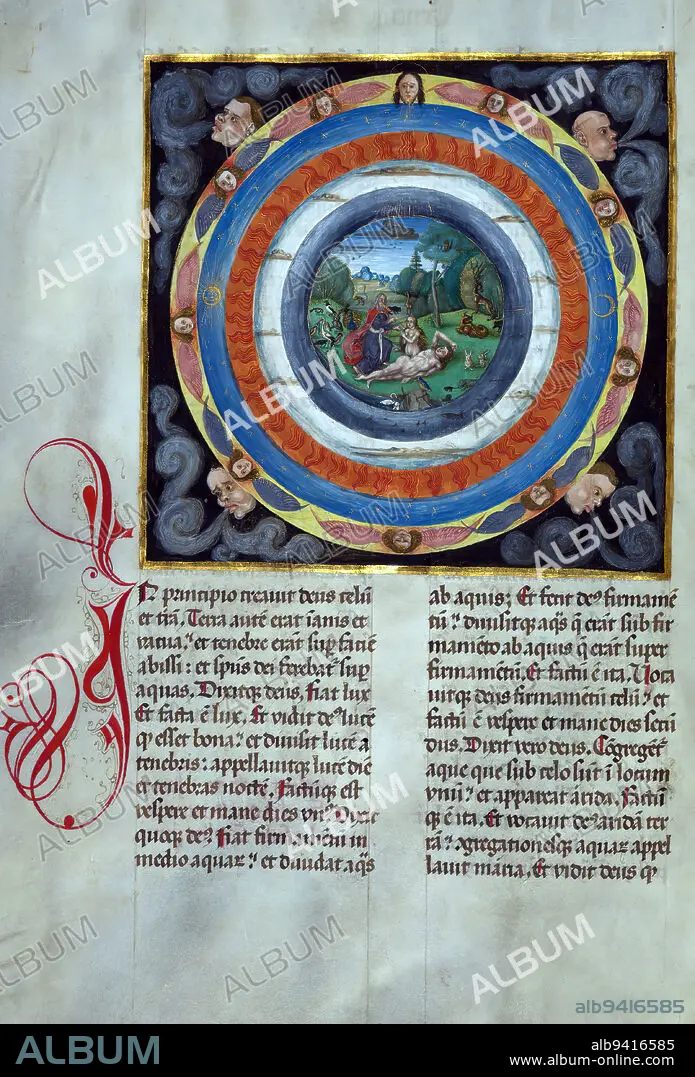 In principio creavit deus celū
et trā̄. Terra autē erat īanis et
vacua: et tenebre erāt sup̱ faciē
abissi: et sp̄us dei ferebat᷑ sup̱
aquas. Dixitq̄ deus, fiat lux
Et facta ē lux. Et vidit deꝰ lucē
q̄ esset bona: et divisit lucē a
tenebris: appellavitq̄ lucē diē
et tenebras noctē. Factūq̄ est
vespere et mane dies vnꝰ. Dixit
quoq̄ deꝰ Fiat firmamentū in
medio aquarꝫ et dividat aq̄s
ab aquis: Et fecit deꝰ firmamē
tū: divisitq̄ aq̄s q̄ erāt sub fir
mamēto ab aquis q̄ erāt super
firmamētū. Et factū ē ita. Voca
vitq̄ deus firmamētū celū: et
factū ē vespere et mane dies secū
dus. Dixit vero deus. Cōgregēt᷑
aque que sub celo sūt ī locum
vnū: et appareat arida. Factū
q̄ ē ita. Et vocavit deꝰ aridam ter
rā: ꝯgregationesq̄ aquarꝫ appel
lavit maria. Et vidit deus q̄
ALBUM
alb9416585
ALBUM
alb9416585
www.album-online.com